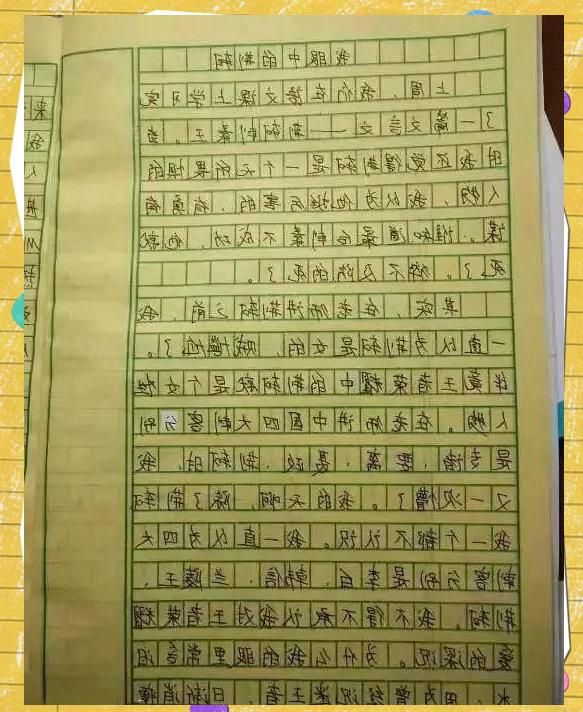 我眼中的荆轲
上周，我们在语文课上学习完
了一篇文言文——荆轲刺秦王。当
时我还觉得荆轲是一个
人物，我以为他挺厉害的，有勇有
谋。谁知道最后刺秦不成功，他就
死了。猝不及防的死了。
其实，在老师讲荆轲之前，我
一直以为荆轲是女的，贼尴尬了。
毕竟王者荣耀中的荆轲就是个女性
人物。在老师讲中国四大刺客分别
是专诸，要离，聂政，荆轲时，我
又一次懵了。我的天啊，除了荆轲
我一个都不认识。我一直以为四大
刺客分别是李白，韩信，兰陵王，
荆轲。我不得不承认我对王者荣耀
爱的深沉。为什么我的眼里常含泪
水，因为曾经沉迷王者，日渐消瘦